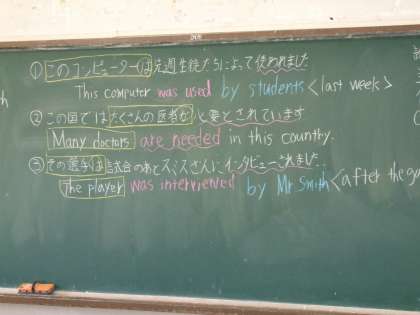 ① このコンピューターは先週生徒たちによって使われました
This computer was used by students <last week>
② この国ではたくさんの医者が必要とされています
Many doctors are needed in this country.
③ その選手は試合のあとスミスさんにインタビューされました.
The player was interviewed by Mr Smith <after the ga